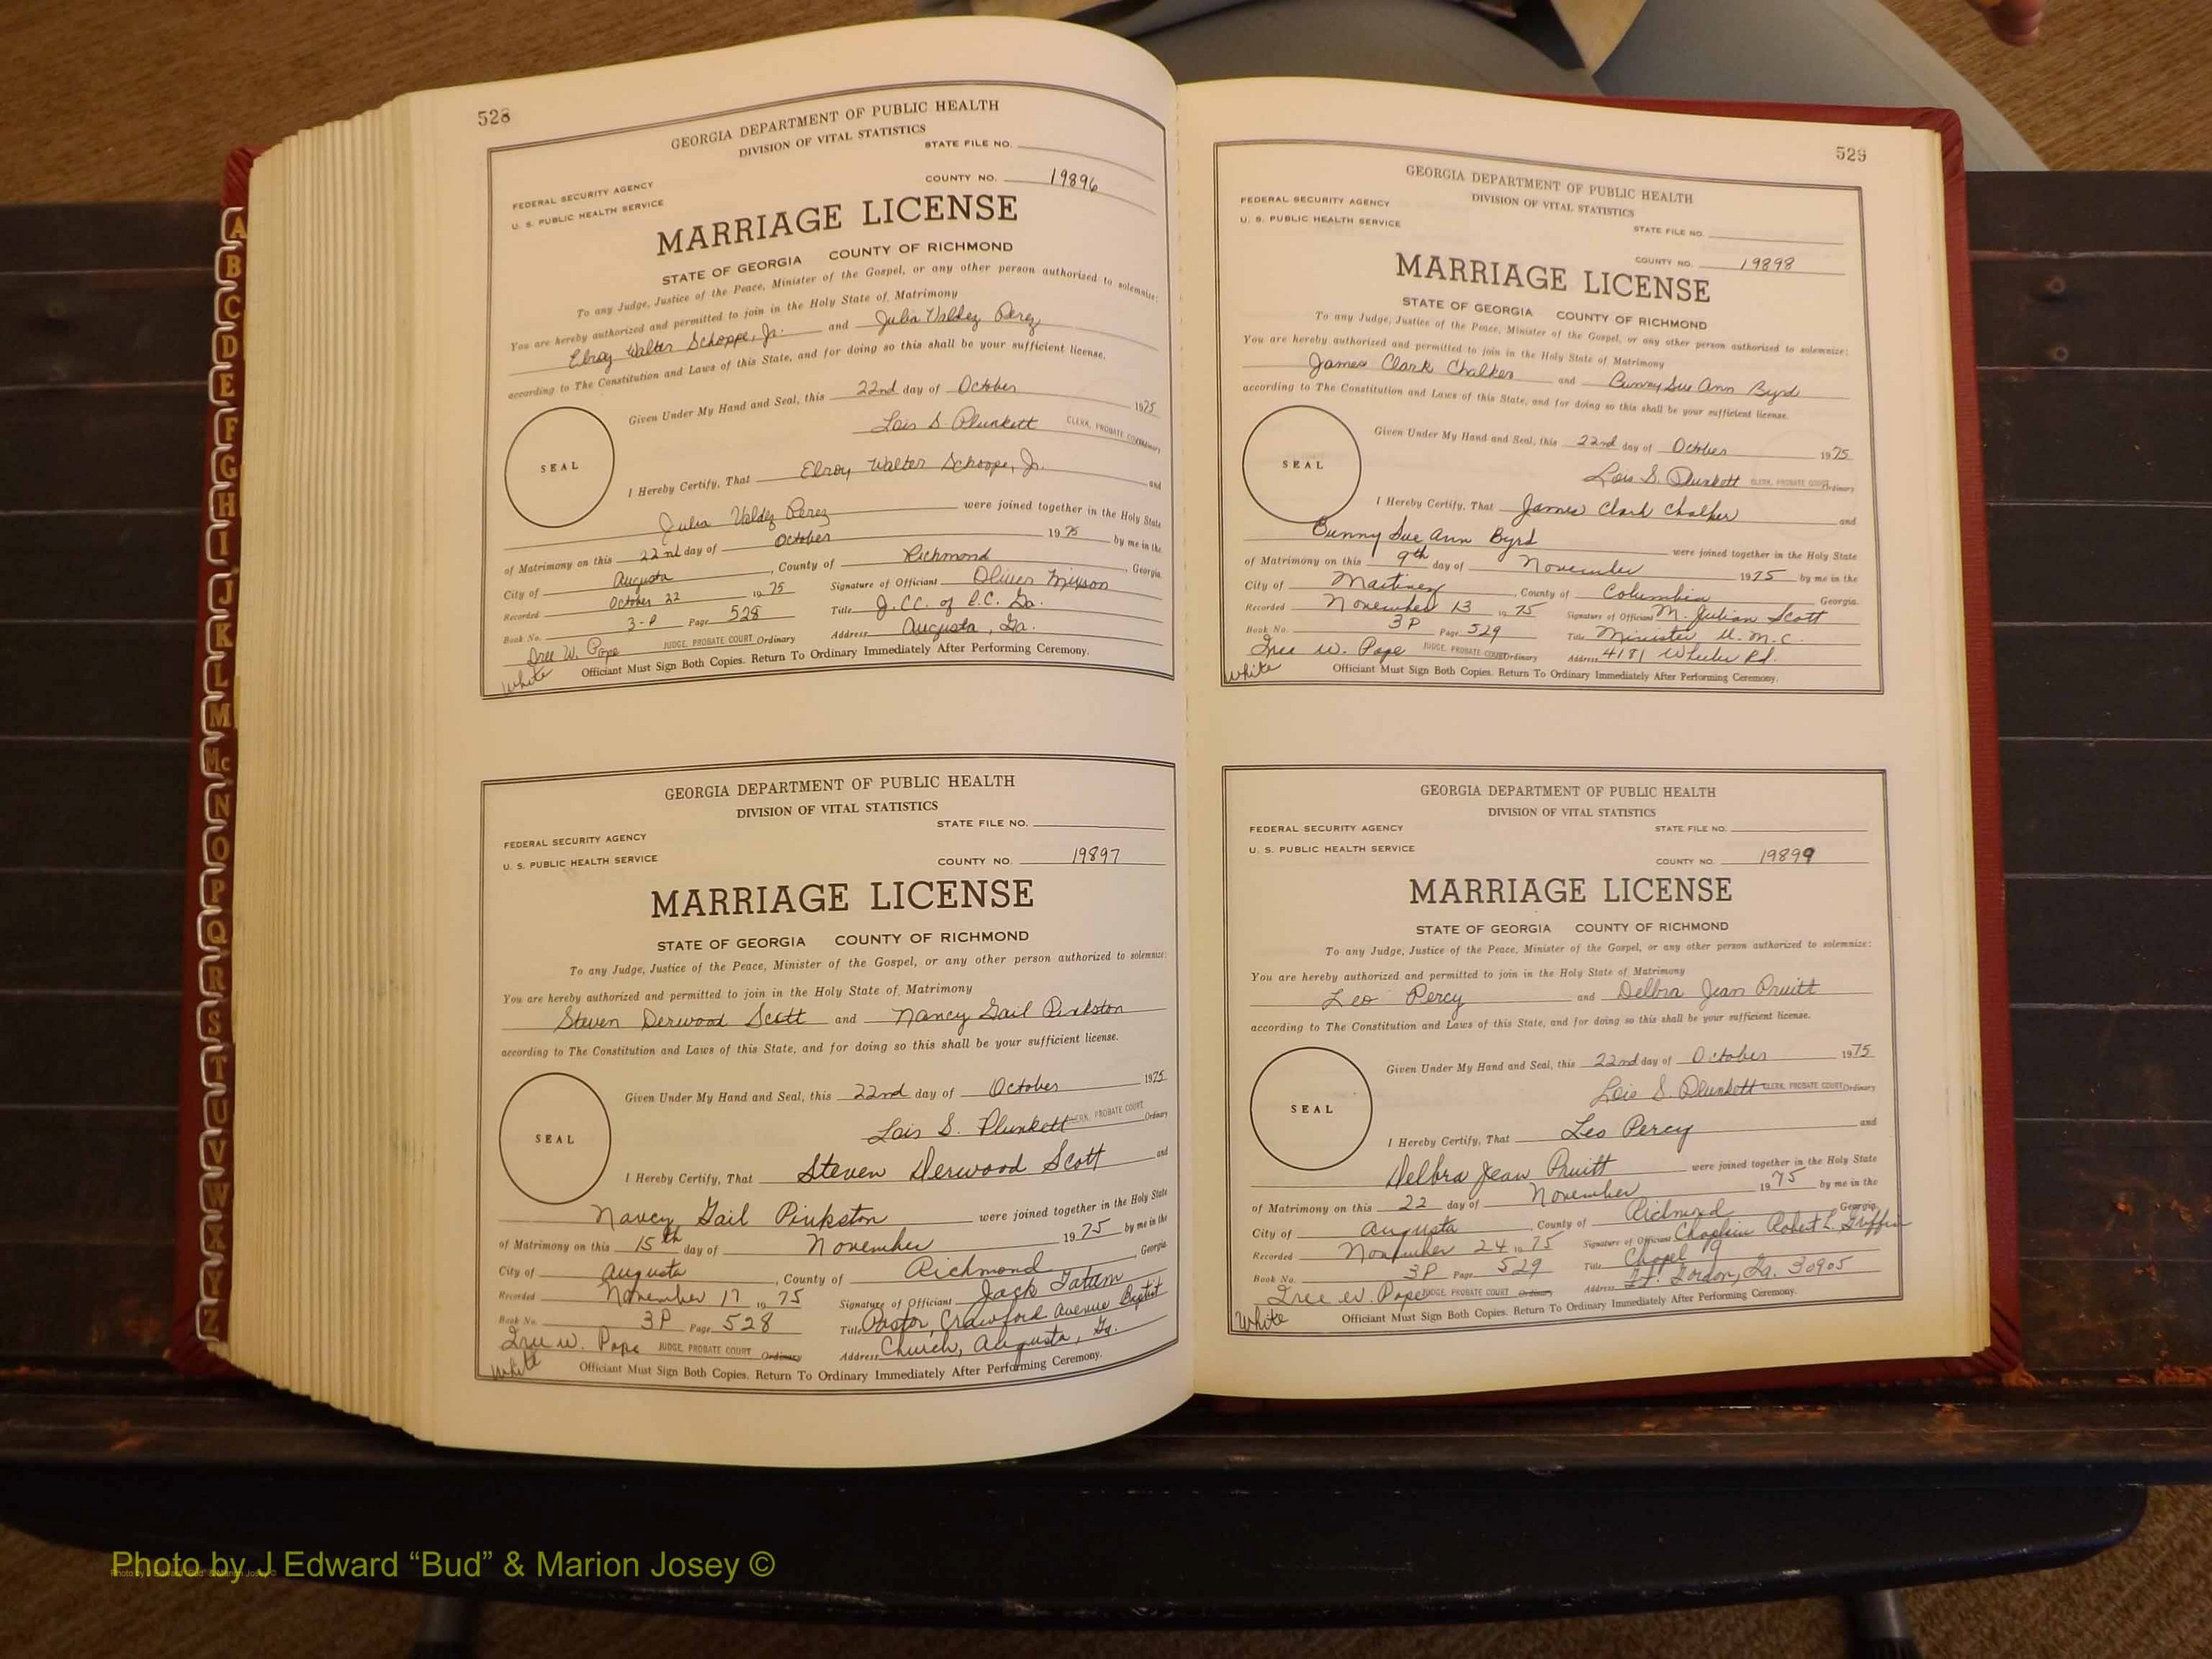 528
GEORGIA DEPARTMENT OF PUBLIC HEALTH
DIVISION OF VITAL STATISTICS
STATE FILE NO.
FEDERAL SECURITY AGENCY
U. S. PUBLIC HEALTH SERVICE
COUNTY NO. 19896
MARRIAGE LICENSE
STATE OF GEORGIA COUNTY OF RICHMOND
To any Judge, Justice of the Peace, Minister of the Gospel, or any other person authorized to solemnize:
You are hereby authorized and permitted to join in the Holy State of Matrimony
Elroy Walter Schoppe, Jr. and Julia Valdez Perez
according to The Constitution and Laws of this State, and for doing so this shall be your sufficient license.
Given Under My Hand and Seal, this 22nd day of October 1975
Lois S. Plunkett CLERK, PROBATE COURT Ordinary
SEAL
I Hereby Certify, That Elroy Walter Schoppe, Jr. and
Julia Valdez Perez were joined together in the Holy State
of Matrimony on this 22nd day of October 1975 by me in the
City of Augusta, County of Richmond, Georgia.
Recorded October 22 1975 Signature of Officiant Oliver
Book No. 3-P Page 528 Title J.CC. of R.C. Ga.
Iree W. Pope JUDGE, PROBATE COURT Ordinary Address Augusta, Ga.
White Officiant Must Sign Both Copies. Return To Ordinary Immediately After Performing Ceremony.
GEORGIA DEPARTMENT OF PUBLIC HEALTH
DIVISION OF VITAL STATISTICS
STATE FILE NO.
FEDERAL SECURITY AGENCY
U. S. PUBLIC HEALTH SERVICE
COUNTY NO. 19897
MARRIAGE LICENSE
STATE OF GEORGIA COUNTY OF RICHMOND
To any Judge, Justice of the Peace, Minister of the Gospel, or any other person authorized to solemnize:
You are hereby authorized and permitted to join in the Holy State of Matrimony
Steven Derwood Scott and Nancy Gail Pinkston
according to The Constitution and Laws of this State, and for doing so this shall be your sufficient license.
Given Under My Hand and Seal, this 22nd day of October 1975
Lois S. Plunkett CLERK, PROBATE COURT Ordinary
SEAL
I Hereby Certify, That Steven Derwood Scott and
Nancy Gail Pinkston were joined together in the Holy State
of Matrimony on this 15th day of November 1975 by me in the
City of Augusta, County of Richmond, Georgia.
Recorded November 17 1975 Signature of Officiant Jack Tatum
Book No. 3P Page 528 Title Pastor, Crawford Avenue Baptist
Iree W. Pope JUDGE, PROBATE COURT Ordinary Address Church, Augusta, Ga.
White Officiant Must Sign Both Copies. Return To Ordinary Immediately After Performing Ceremony.
529
GEORGIA DEPARTMENT OF PUBLIC HEALTH
DIVISION OF VITAL STATISTICS
FEDERAL SECURITY AGENCY
U. S. PUBLIC HEALTH SERVICE
STATE FILE NO.
COUNTY NO. 19898
MARRIAGE LICENSE
STATE OF GEORGIA COUNTY OF RICHMOND
To any Judge, Justice of the Peace, Minister of the Gospel, or any other person authorized to solemnize:
You are hereby authorized and permitted to join in the Holy State of Matrimony
James Clark Chalker and Bunny Sue Ann Byrd
according to The Constitution and Laws of this State, and for doing so this shall be your sufficient license.
Given Under My Hand and Seal, this 22nd day of October 1975
Lois S. Plunkett CLERK, PROBATE COURT Ordinary
SEAL
I Hereby Certify, That James Clark Chalker and
Bunny Sue Ann Byrd were joined together in the Holy State
of Matrimony on this 9th day of November 1975 by me in the
City of Martinez, County of Columbia Georgia.
Recorded November 13 1975 Signature of Officiant M. Julian Scott
Book No. 3P Page 529 Title Minister U. M. C.
Iree W. Pope JUDGE, PROBATE COURT Ordinary Address 4181 Wheeler Rd.
White Officiant Must Sign Both Copies. Return To Ordinary Immediately After Performing Ceremony.
GEORGIA DEPARTMENT OF PUBLIC HEALTH
DIVISION OF VITAL STATISTICS
FEDERAL SECURITY AGENCY
STATE FILE NO.
U. S. PUBLIC HEALTH SERVICE
COUNTY NO. 19899
MARRIAGE LICENSE
STATE OF GEORGIA COUNTY OF RICHMOND
To any Judge, Justice of the Peace, Minister of the Gospel, or any other person authorized to solemnize:
You are hereby authorized and permitted to join in the Holy State of Matrimony
Leo Percy and Delbra Jean Pruitt
according to The Constitution and Laws of this State, and for doing so this shall be your sufficient license.
Given Under My Hand and Seal, this 22nd day of October 1975
Lois S. Plunkett CLERK, PROBATE COURT Ordinary
SEAL
I Hereby Certify, That Leo Percy and
Delbra Jean Pruitt were joined together in the Holy State
of Matrimony on this 22 day of November 1975 by me in the
City of Augusta, County of Richmond Georgia.
Recorded November 24 1975 Signature of Officiant Chaplain Robert L. Griffin
Book No. 3P Page 529 Title Chapel 9
Iree W. Pope JUDGE, PROBATE COURT Ordinary Address Ft. Gordon, Ga. 30905
White Officiant Must Sign Both Copies. Return To Ordinary Immediately After Performing Ceremony.
A
B
C
D
E
F
G
H
I
J
K
L
M
Mc
N
O
P
Q
R
S
T
U
V
W
X
Y
Z
Photo by J Edward “Bud” & Marion Josey ©
Photo by J Edward "Bud" & Marion Josey ©